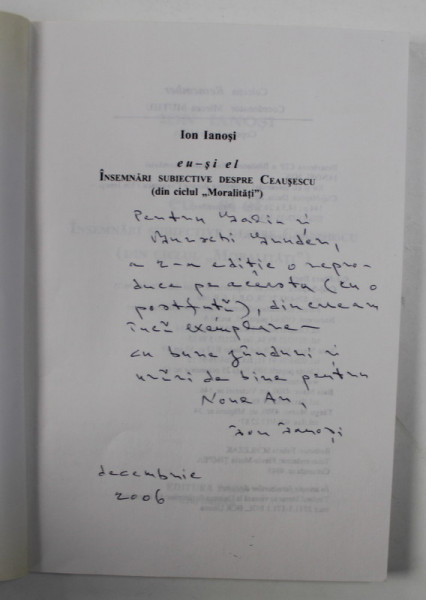 Ion Ianoși
eu–și el
ÎNSEMNĂRI SUBIECTIVE DESPRE CEAUȘESCU
(din ciclul „Moralități”)
Pentru și
a 2-a ediție o repro-
duce pe aceasta (cu o
postfață), din care am
încă exemplare –
cu bune gânduri și
urări de bine pentru
Noul An,
Ion Ianoși
decembrie
2006